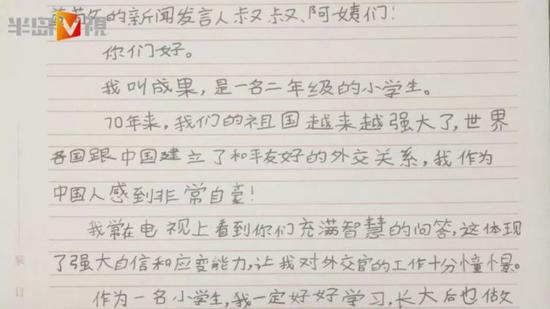 半岛V视
的新闻发言人叔叔、阿姨们:
你们好。
我叫成果,是一名二年级的小学生。
70年来,我们的祖国越来越强大了,世界
各国跟中国建立了和平友好的外交关系,我作为
中国人感到非常自豪!
我常在电视上看到你们充满智慧的问答,这体现
了强大自信和应变能力,让我对外交官的工作十分憧憬。
作为一名小学生,我一定好好学习,长大后也做
装
订